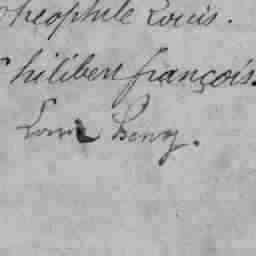 heophile Louis.
hilibert françois.
Louis